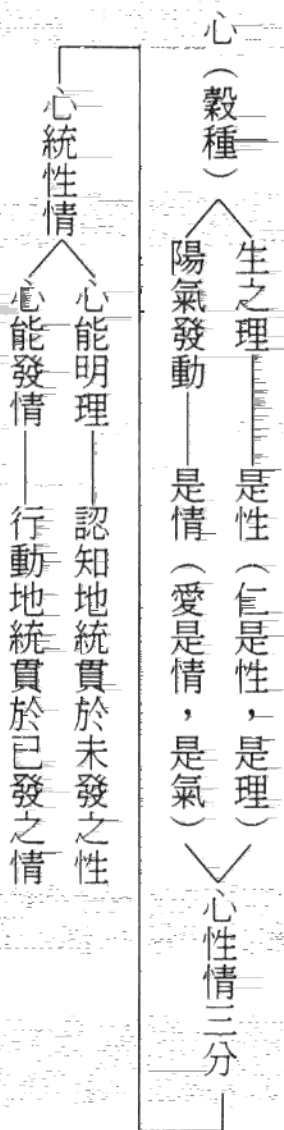 心（穀種）
生之理
是性（仁是性，是理）
陽氣發動
是情（愛是情，是氣）
心性情三分
心統性情
心能明理
認知地統貫於未發之性
心能發情
行動地統貫於已發之情